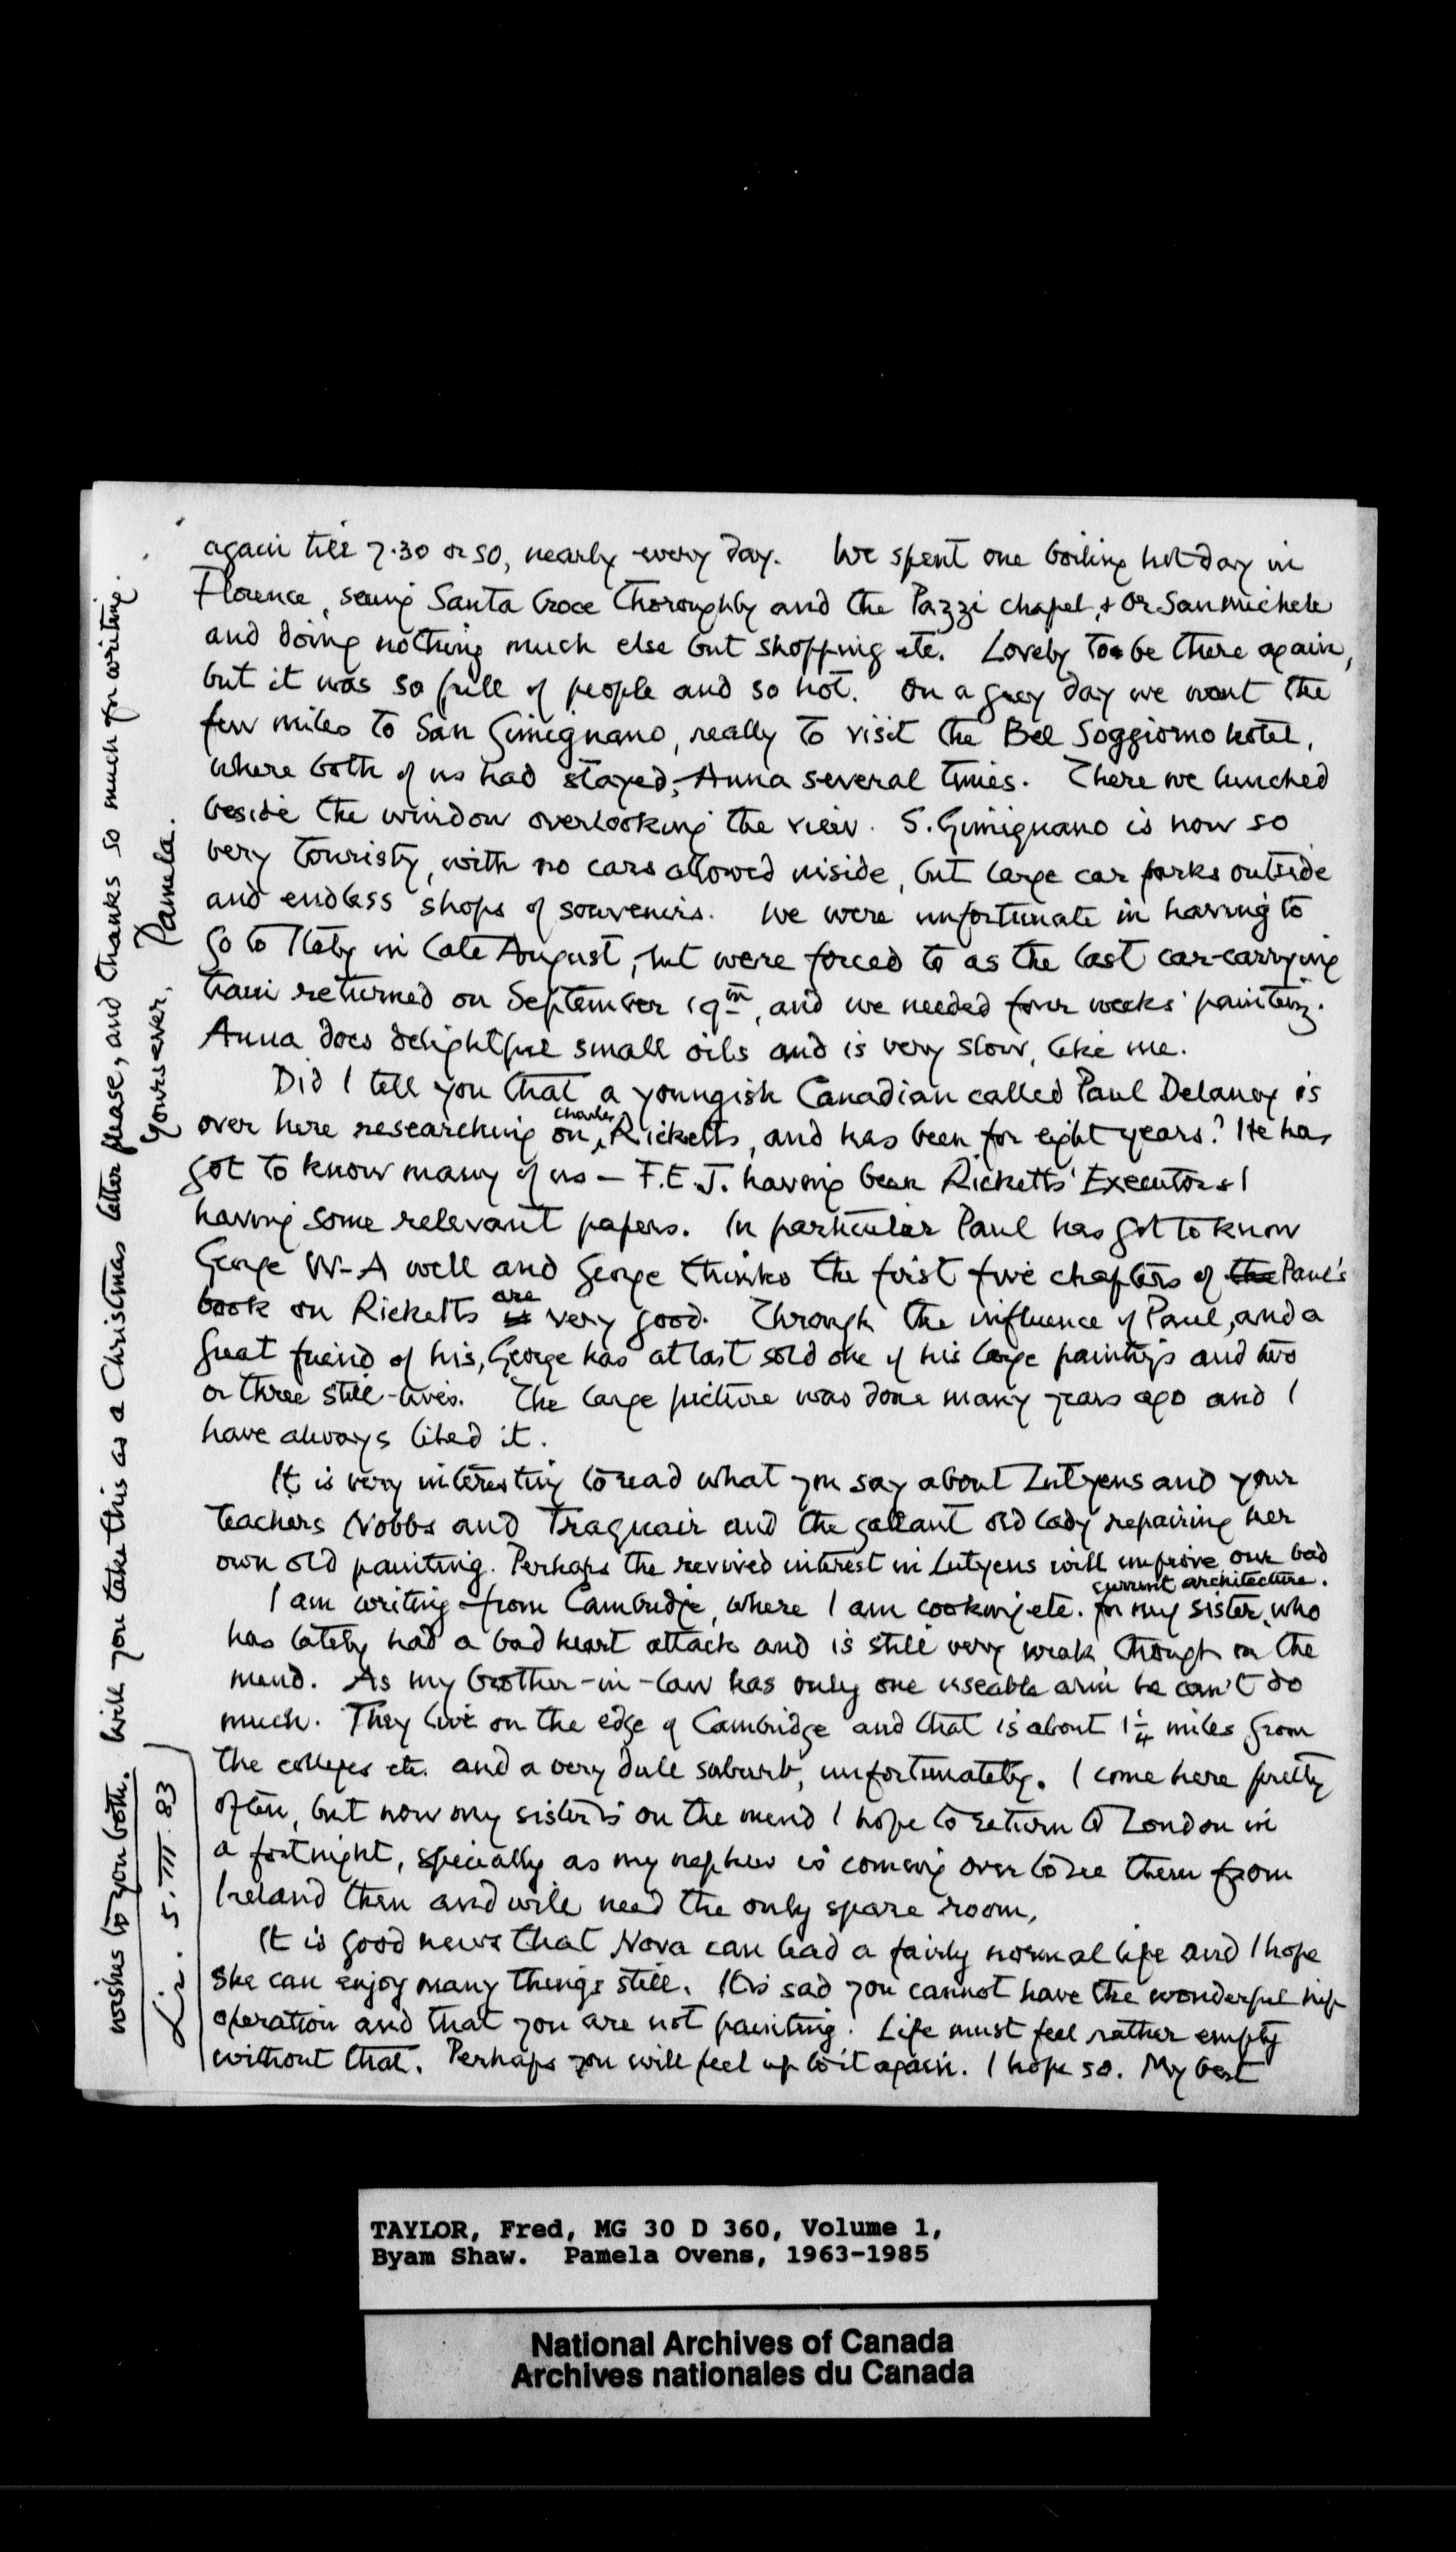 again till 7.30 or so, nearly every day. We spent one boiling hot day in
Florence, seeing Santa Croce thoroughly and the Pazzi chapel, & Or San Michele
and doing nothing much else but shopping etc. Lovely to be there again,
but it was so full of people and so hot. On a grey day we went the
few miles to San Gimignano, really to visit the Bel Soggiorno hotel,
where both of us had stayed, Anna several times. There we lunched
beside the window overlooking the view. S. Gimignano is now so
very touristy, with no cars allowed inside, but large car parks outside
and endless shops of souvenirs. We were unfortunate in having to
go to Italy in late August, but were forced to as the last car-carrying
train returned on September 19th, and we needed four weeks' painting.
Anna does delightful small oils and is very slow, like me.
Did I tell you that a youngish Canadian called Paul Delaney is
over here researching on Charles Ricketts, and has been for eight years? He has
got to know many of us – F.E.J. having been Ricketts' Executor & I
having some relevant papers. In particular Paul has got to know
George W-A well and George thinks the first five chapters of the Paul's
book on Ricketts is are very good. Through the influence of Paul, and a
great friend of his, George has at last sold one of his large paintings and two
or three still-lives. The large picture was done many years ago and I
have always liked it.
It is very interesting to read what you say about Lutyens and your
teachers Nobbs and Traquair and the gallant old lady repairing her
own old painting. Perhaps the revived interest in Lutyens will improve our bad
current architecture.
I am writing from Cambridge, where I am cooking etc. for my sister, who
has lately had a bad heart attack and is still very weak, though on the
mend. As my brother-in-law has only one useable arm he can't do
much. They live on the edge of Cambridge and that is about 1¼ miles from
the colleges etc. and a very dull suburb, unfortunately. I come here pretty
often, but now my sister is on the mend I hope to return to London in
a fortnight, specially as my nephew is coming over to see them from
Ireland then and will need the only spare room.
It is good news that Nova can lead a fairly normal life and I hope
she can enjoy many things still. It is sad you cannot have the wonderful hip
operation and that you are not painting. Life must feel rather empty
without that. Perhaps you will feel up to it again. I hope so. My best
wishes to you both. Will you take this as a Christmas letter please, and thanks so much for writing.
Yours ever, Pamela.
5.III.83
TAYLOR, Fred, MG 30 D 360, Volume 1,
Byam Shaw. Pamela Ovens, 1963-1985
National Archives of Canada
Archives nationales du Canada